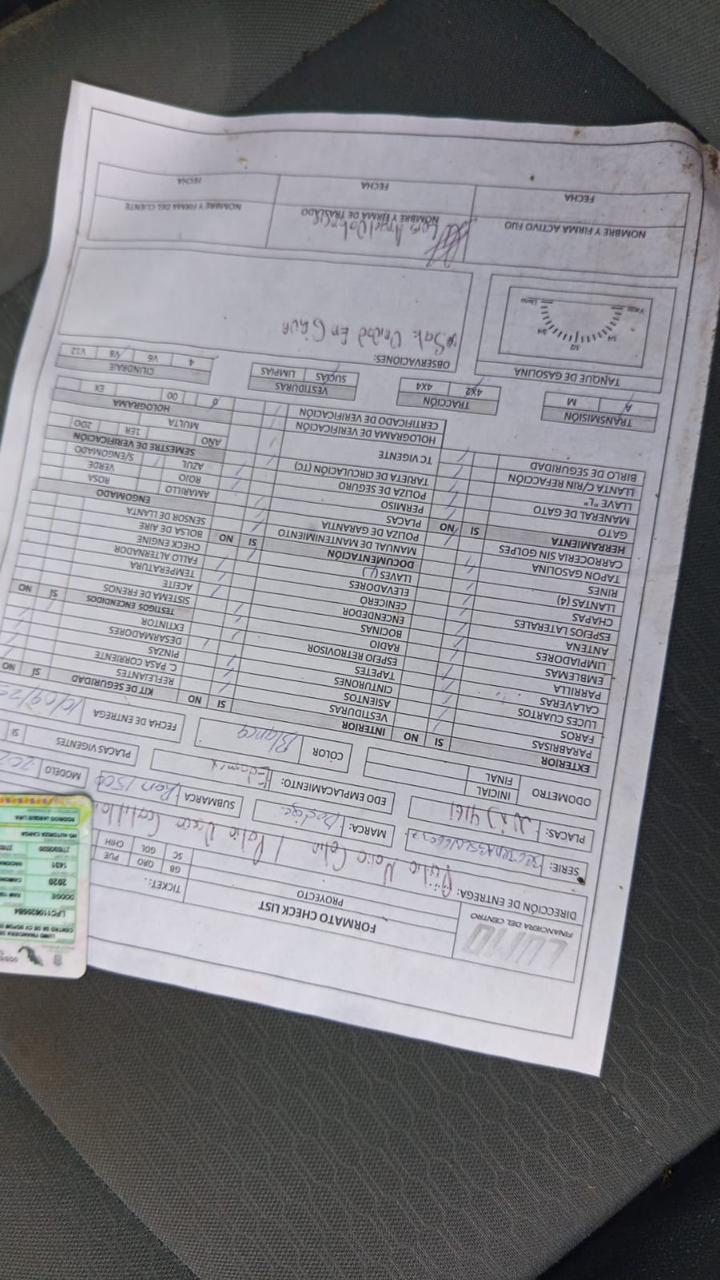 LUMO
FINANCIERA DEL CENTRO
FORMATO CHECK LIST
PROYECTO
TICKET:
GB QRO PUE
SC GDL CHH
DIRECCIÓN DE ENTREGA: Patio
SERIE:
PLACAS:
MARCA: Dodge
SUBMARCA Ram 1500
MODELO
ODOMETRO
INICIAL
FINAL
EDO EMPLACAMIENTO: Edomex
PLACAS VIGENTES
SI
COLOR Blanco
FECHA DE ENTREGA
EXTERIOR SI NO
PARABRISAS
FAROS
LUCES CUARTOS
CALAVERAS
PARRILLA
EMBLEMAS
LIMPIADORES
ANTENA
ESPEJOS LATERALES
CHAPAS
LLANTAS (4)
RINES
TAPON GASOLINA
CARROCERIA SIN GOLPES
HERRAMIENTA SI NO
GATO
MANERAL DE GATO
LLAVE "L"
LLANTA C/RIN REFACCIÓN
BIRLO DE SEGURIDAD
INTERIOR SI NO
VESTIDURAS
ASIENTOS
CINTURONES
TAPETES
ESPEJO RETROVISOR
RADIO
BOCINAS
ENCENDEDOR
CENICERO
ELEVADORES
LLAVES
DOCUMENTACIÓN SI NO
MANUAL DE MANTENIMIENTO
POLIZA DE GARANTIA
PLACAS
PERMISO
POLIZA DE SEGURO
TARJETA DE CIRCULACIÓN (TC)
TC VIGENTE
HOLOGRAMA DE VERIFICACIÓN
CERTIFICADO DE VERIFICACIÓN
KIT DE SEGURIDAD SI NO
REFLEJANTES
C. PASA CORRIENTE
PINZAS
DESARMADORES
EXTINTOR
TESTIGOS ENCENDIDOS SI NO
SISTEMA DE FRENOS
ACEITE
TEMPERATURA
FALLO ALTERNADOR
CHECK ENGINE
BOLSA DE AIRE
SENSOR DE LLANTA
ENGOMADO
AMARILLO ROSA
ROJO VERDE
AZUL S/ENGOMADO
SEMESTRE DE VERIFICACIÓN
AÑO 1ER 2DO
MULTA
HOLOGRAMA
0 00 EX
TRANSMISIÓN
A M
TRACCIÓN
4X2 4X4
VESTIDURAS
SUCIAS LIMPIAS
CILINDRAJE
4 V6 V8 V12
TANQUE DE GASOLINA
Vacio 1/4 1/2 3/4 Lleno
OBSERVACIONES:
NOMBRE Y FIRMA ACTIVO FIJO
NOMBRE Y FIRMA DE TRASLADO
NOMBRE Y FIRMA DEL CLIENTE
FECHA
FECHA
FECHA
2020
DODGE